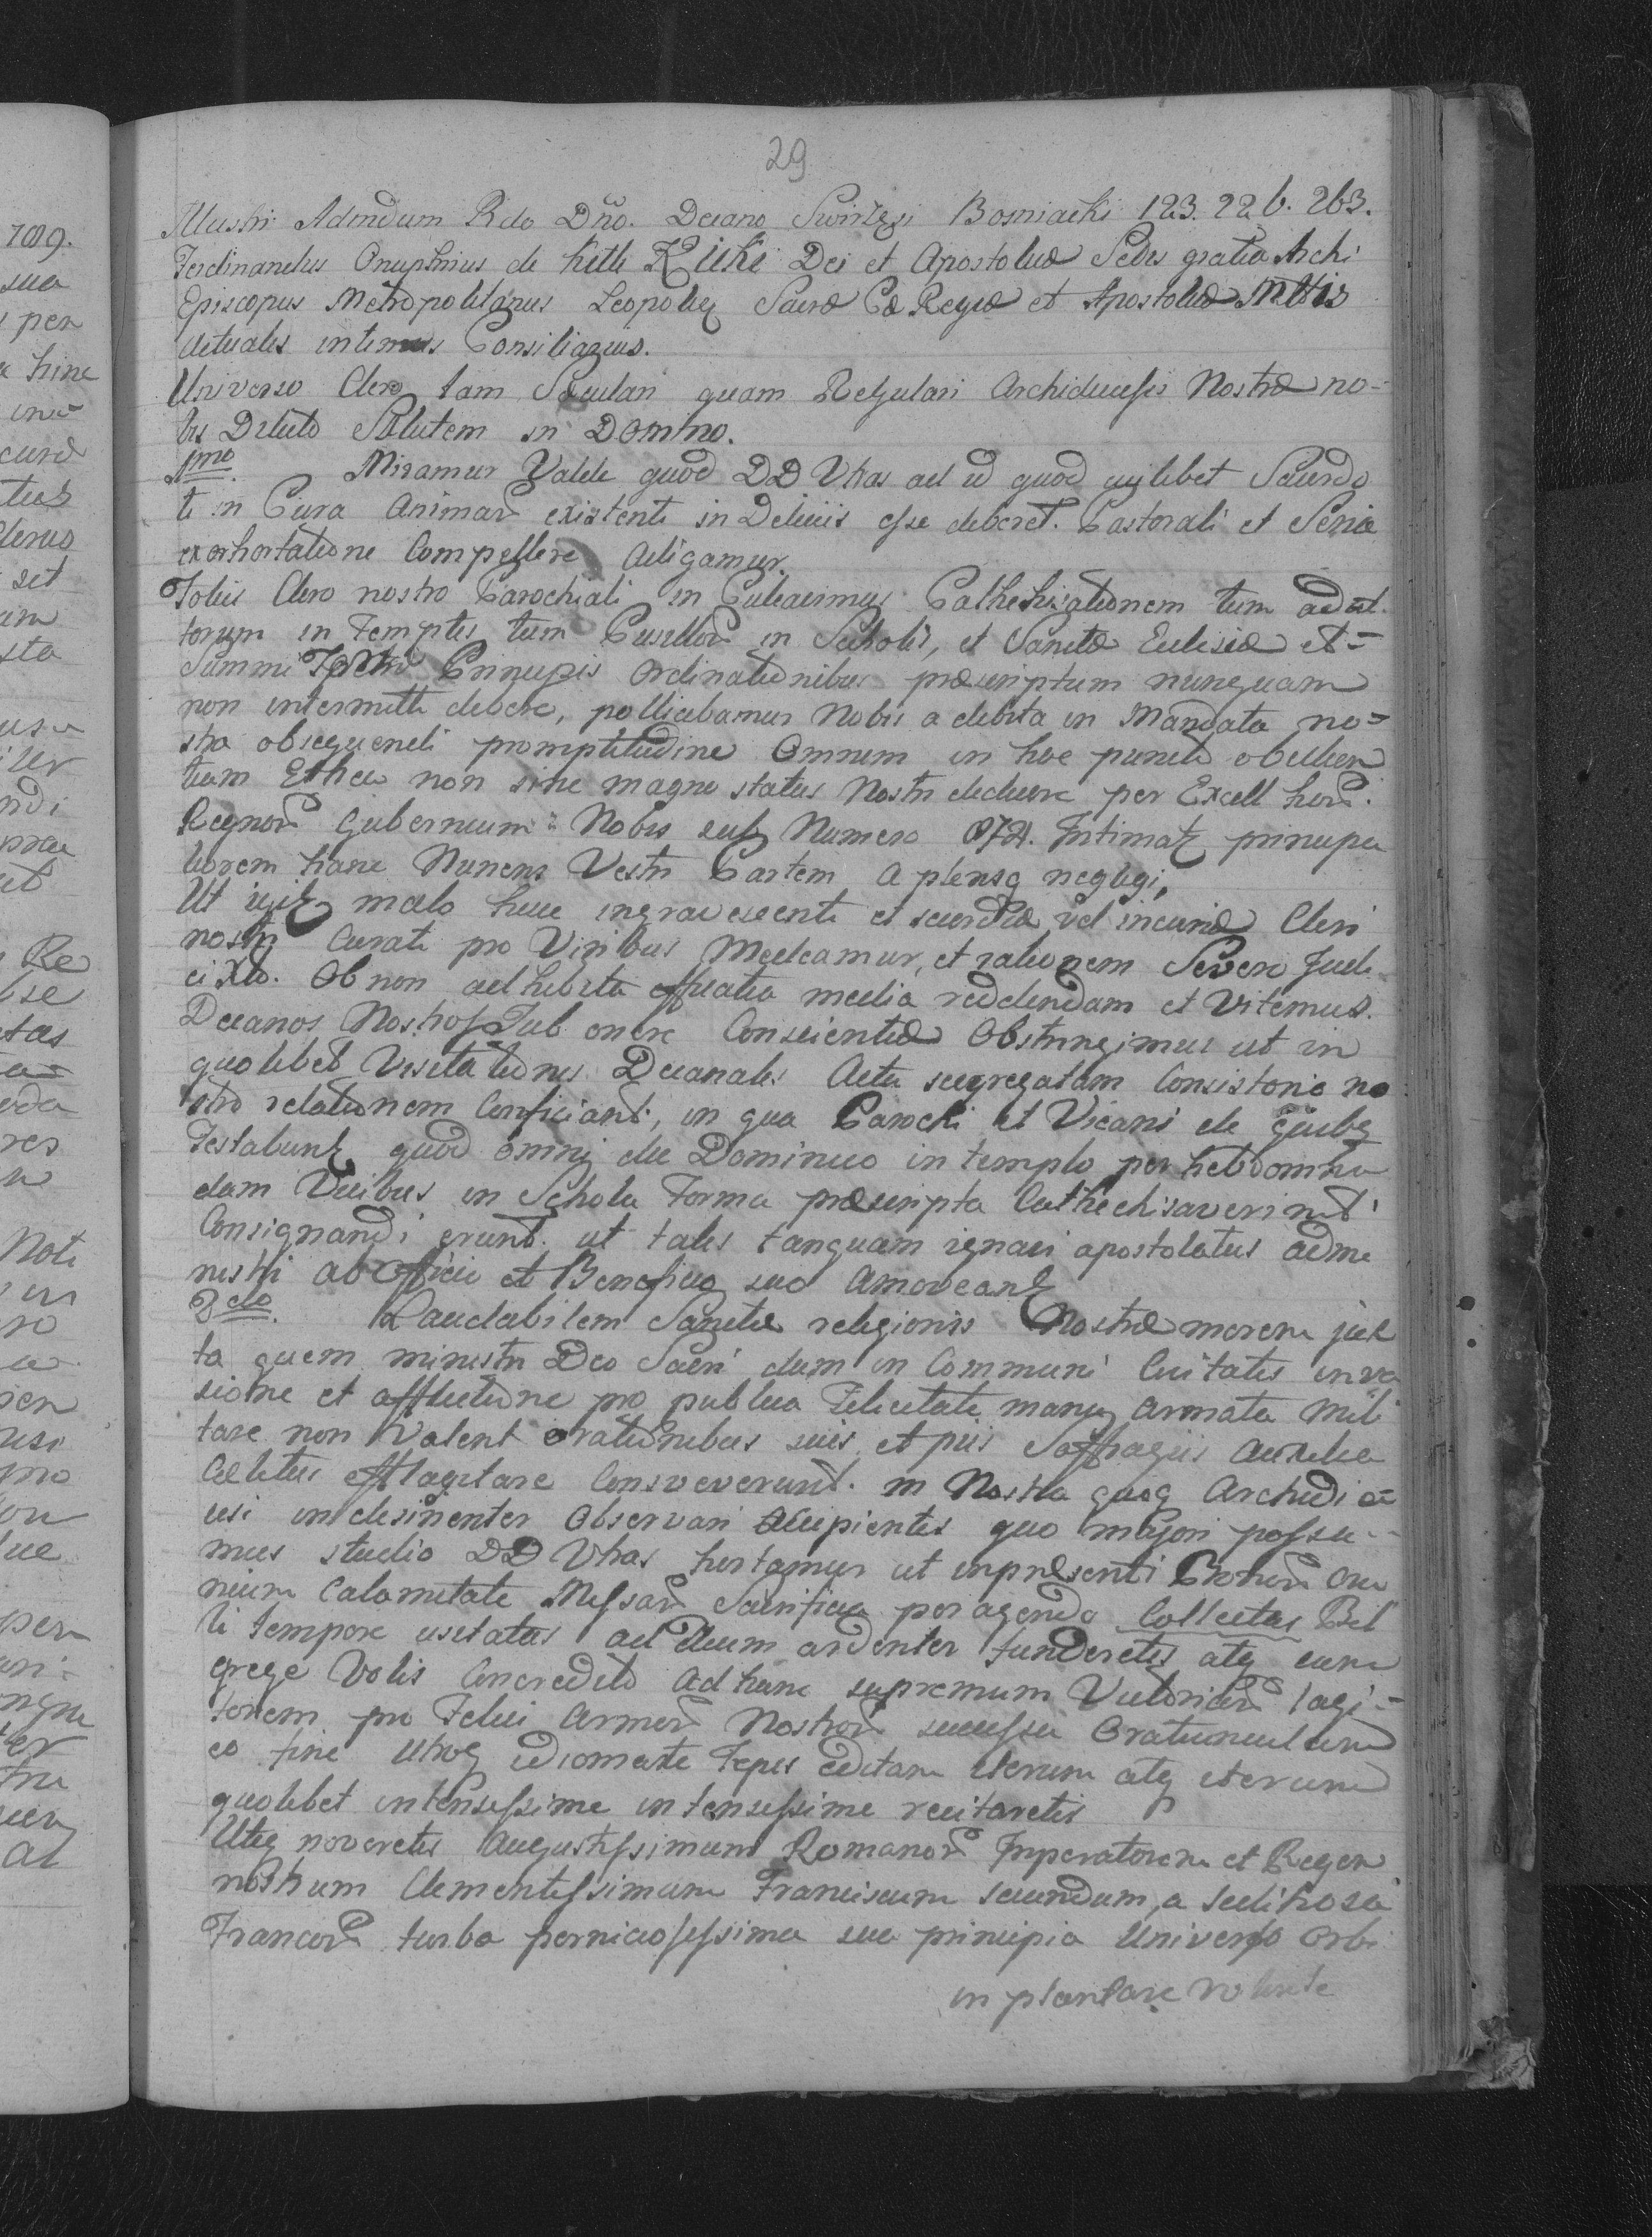 29
Illustri Admdum Rdo Dño. Decano Swirzsi Bosniacki 123. 226. 263.
Ferdinandus Onuphrius de Kitki Kicki Dei et Apostolicæ Sedis gratia Archi
Episcopus Metropolitanus Leopoliens Sacræ Cæ Regiæ et Apostolicæ Mttis
Actualis intimus Consiliarius.
Universo Clero tam Sæculari quam Regulari Archidiæcesis Nostræ no-
bis Dilecto Salutem in Domino.
1mo. Miramur Valde quod DD Vras ad id quod cuilibet Sacerdo
ti in Cura Animar existenti in Deliciis esse deberet. Pastorali et Seria
exorhortatione Compellere adigamur.
Toties Clero nostro Parochiali in Culcavimus Cathehizationem tum adul
torum in Templis tum Pusillor in Scholis, et Sanctæ Eclesiæ et=
Summi Principis Ordinationibus præscriptum nunquam
non intermitti debere, pollicebamur Nobis a debita in Mandata no=
stra obsequendi promptitudine Omnem in hoc puncto obedien
tiam Et hæc non sine magno status Nostri dedecore per Excell hor.
Regnor Gubernium Nobis sub Numero 8721. Intimat principa
liorem hanc Muneris Vestri Partem a plerisq negligi,
Ut igitr malo huic ingravescenti et secordiæ vel incuriæ Cleri
nostri Curati pro Viribus Medeamur, et rationem Severo Judi
ci Xto. Ob non adhibita efficatia media reddendam et Vitemus.
Decanos Nostros Sub onere Conscientiæ Obstringimus ut in
quolibet Visitationis Decanalis Actu segregatam Consistorio no
stro relationem Conficiant, in qua Parochi et Vicarii de quibus
Testabunt quod omni die Dominico in templo per hebdomma
dam Vicibus in Schola Forma præscripta Cathechisaverint
Consignandi erunt ut tales tanquam ignavi apostolatus admi
nistri ab Officio et Beneficio suo Amoveant
2do. Laudabilem Sanctæ religionis Nostræ morem jux
ta quem ministri Deo Sacri dum in Communi Civitatis inva
sione et afflictione pro publica Felicitate manu Armata Mili
tare non Valent orationibus suis et piis Soffragiis Auxilia
Cælitus efflagitare Consveverunt. in Nostra quoq Archidiæ
cesi indesinenter Observari Accipientes quo majori possu-
mus studio DD Vras hortamur ut inpræsenti Om
nium Calamitate Missar Sacrificia peragendo Collectas Bel
li tempore usitatas ad Deum ardenter funderetis atq cum
grege Vobis Concredito Ad hunc supremum Victoriar lagi-
torem pro Felici Armor Nostror successu Oratiunculam
eo fine Utroq idiomate Typis editam iterum atq iterum
quolibet intensissime intensissime recitaretis
Utiq noveretis Augustissimum Romanor Imperatorem et Regem
nostrum Clementissimum Franciscum secundum, a seditiosa
Francor turba perniciosissima sua principia Universo Orbi
in plantare volente